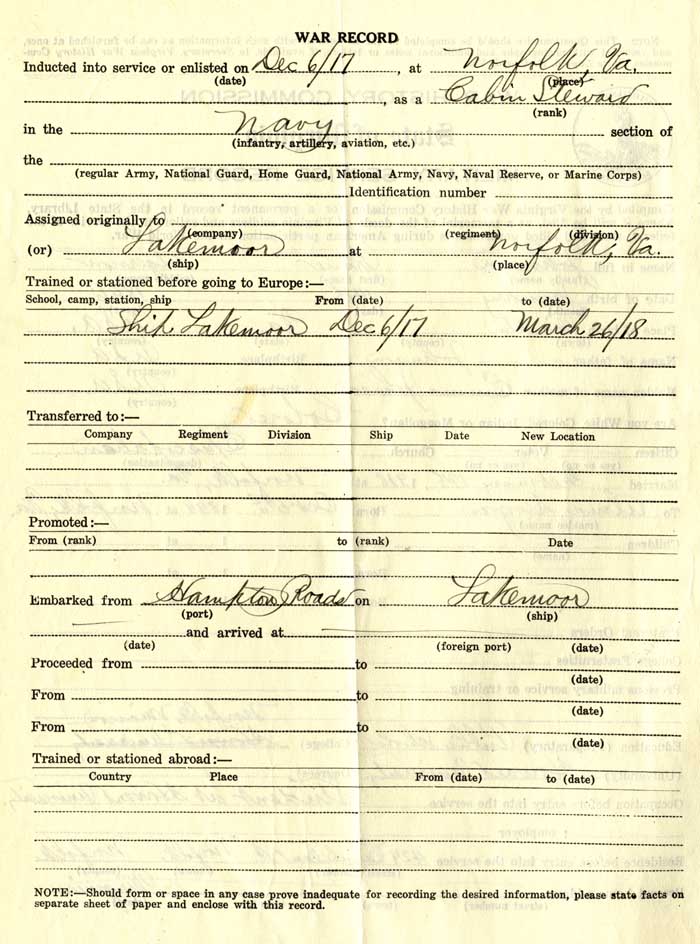 WAR RECORD
Inducted into service or enlisted on Dec 6/17, at Norfolk, Va.
(date) (place)
, as a Cabin Steward
(rank)
in the Navy section of
(infantry, artillery, aviation, etc.)
the
(regular Army, National Guard, Home Guard, National Army, Navy, Naval Reserve, or Marine Corps)
Identification number
Assigned originally to
(company) (regiment) (division)
(or) Lakemoor at Norfolk, Va.
(ship) (place)
Trained or stationed before going to Europe:—
School, camp, station, ship From (date) to (date)
Ship Lakemoor Dec 6/17 March 26/18
Transferred to:—
Company Regiment Division Ship Date New Location
Promoted:—
From (rank) to (rank) Date
Embarked from Hampton Roads on Lakemoor
(port) (ship)
and arrived at
(date) (foreign port) (date)
Proceeded from to
(date)
From to
(date)
From to
(date)
Trained or stationed abroad:—
Country Place From (date) to (date)
NOTE:—Should form or space in any case prove inadequate for recording the desired information, please state facts on
separate sheet of paper and enclose with this record.